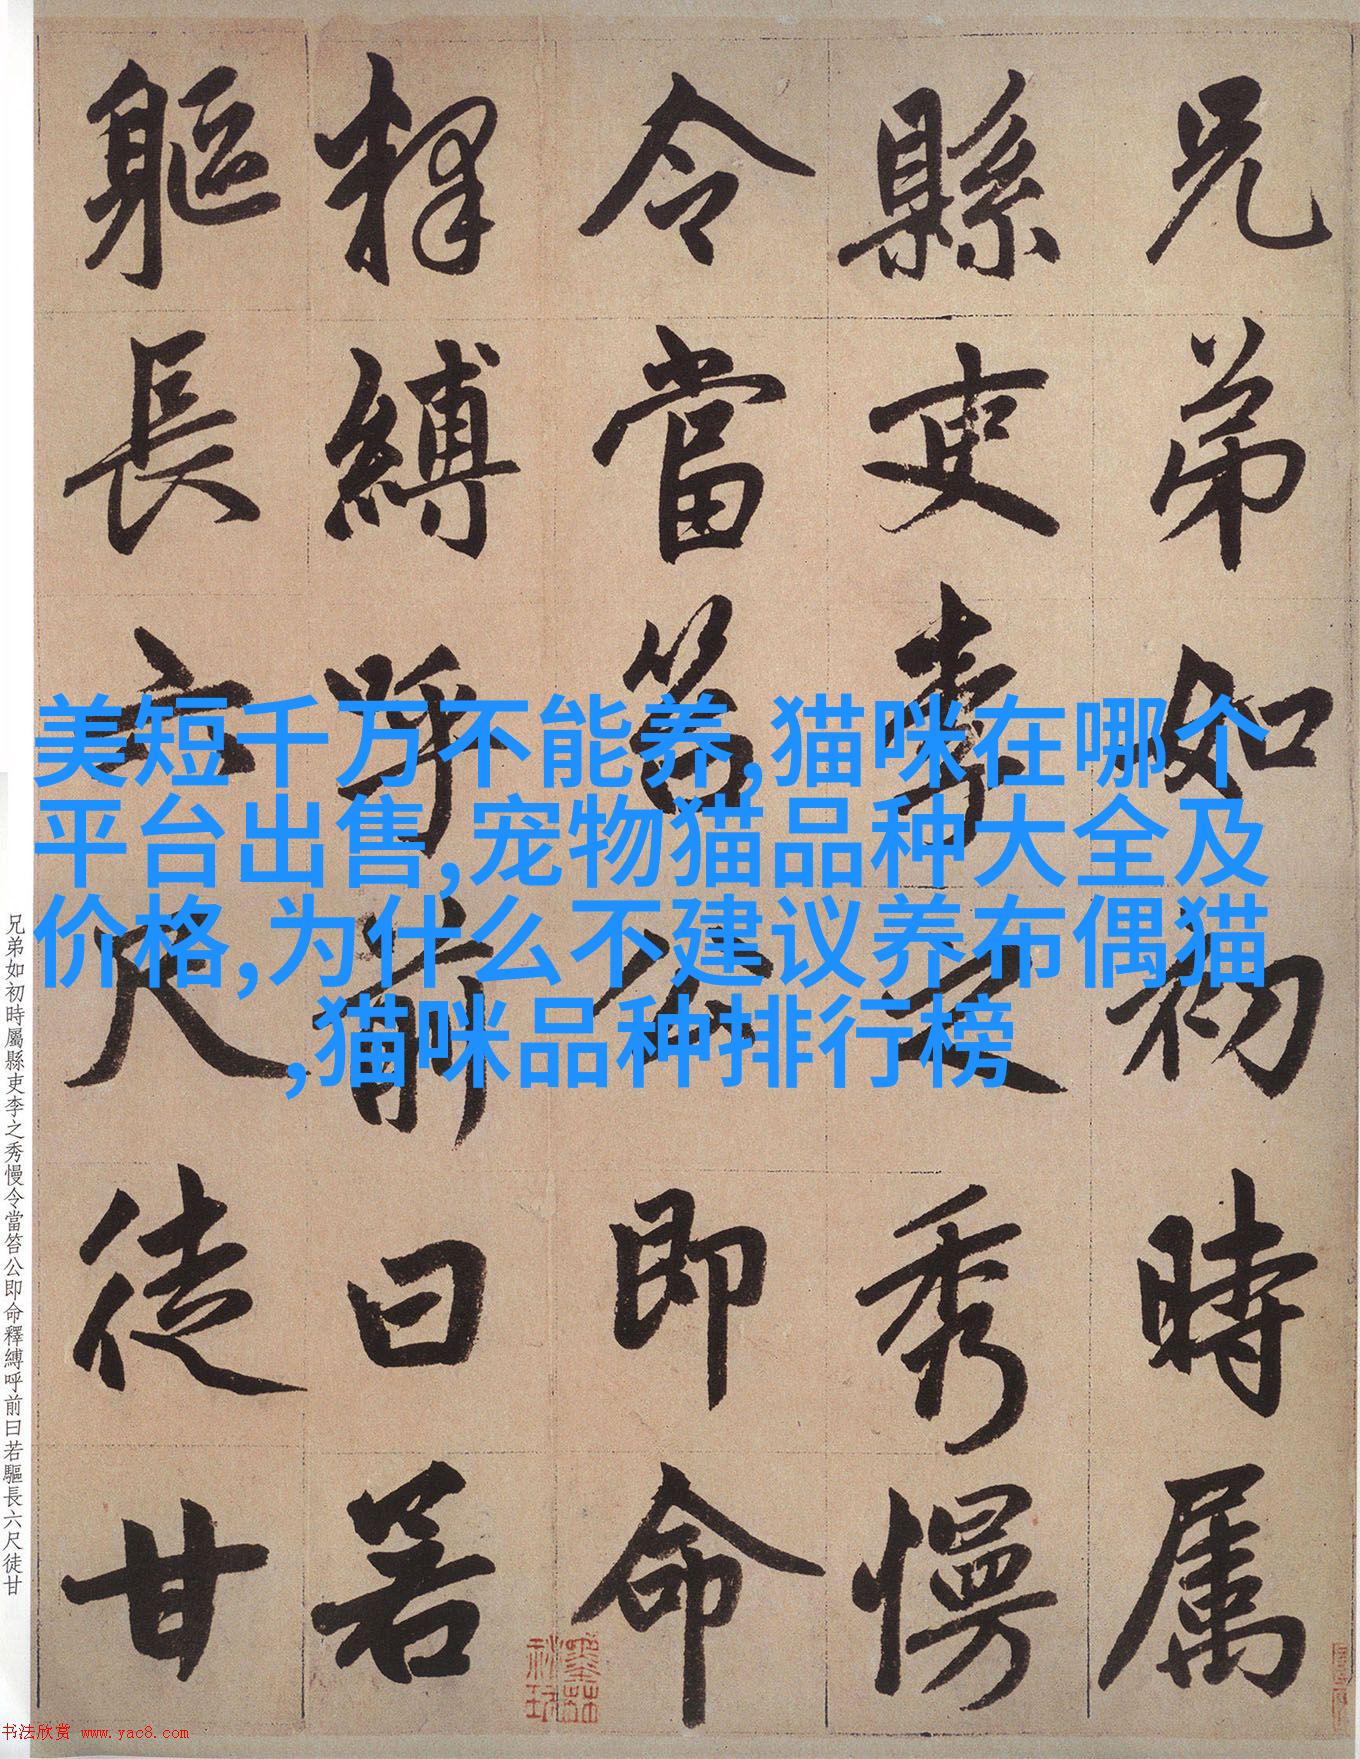 兄弟如初時属
縣吏李之秀慢
令當笞公即命
釋縛呼前曰若
軀長六尺徒甘
美短千万不能养,猫咪在哪个
平台出售,宠物猫品种大全及
价格,为什么不建议养布偶猫
,猫咪品种排行榜
兄弟如初時屬縣吏李之秀慢令當笞公即命釋縛呼前曰若驅長六尺徒甘
书法欣赏 www.yac8.com